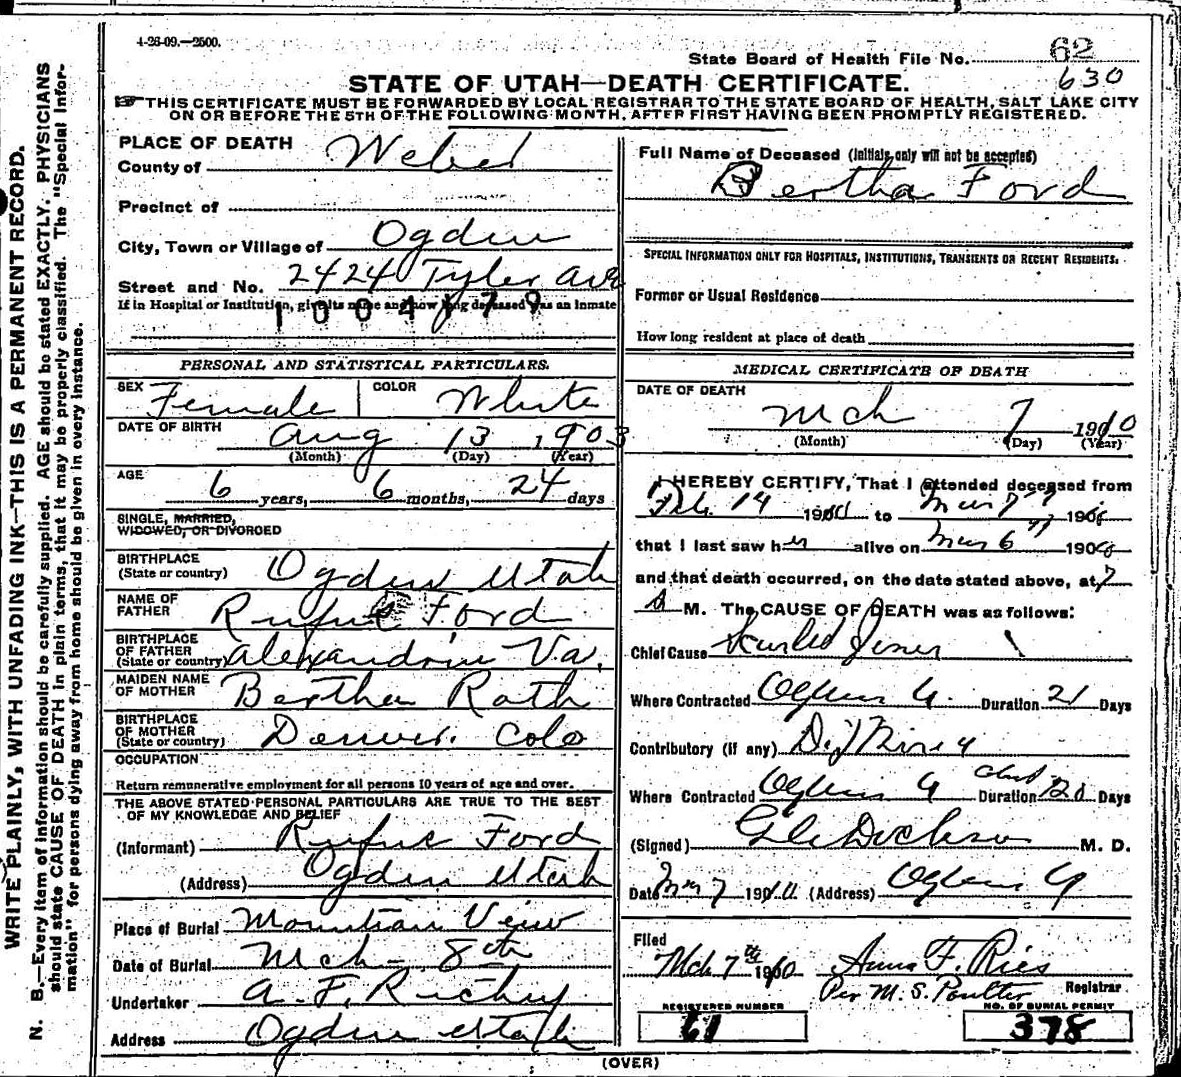 4-26-09.—2500.
State Board of Health File No. 62
630
STATE OF UTAH—DEATH CERTIFICATE.
THIS CERTIFICATE MUST BE FORWARDED BY LOCAL REGISTRAR TO THE STATE BOARD OF HEALTH, SALT LAKE CITY
ON OR BEFORE THE 5TH OF THE FOLLOWING MONTH, AFTER FIRST HAVING BEEN PROMPTLY REGISTERED.
WRITE PLAINLY, WITH UNFADING INK—THIS IS A PERMANENT RECORD.
N. B.—Every item of information should be carefully supplied. AGE should be stated EXACTLY. PHYSICIANS
should state CAUSE OF DEATH in plain terms, that it may be properly classified. The "Special Infor-
mation" for persons dying away from home should be given in every instance.
PLACE OF DEATH
County of Weber
Precinct of
City, Town or Village of Ogden
Street and No. 2424 Tyler Ave
If in Hospital or Institution, give its name and how long deceased was an inmate
1004179
PERSONAL AND STATISTICAL PARTICULARS.
SEX Female COLOR White
DATE OF BIRTH Aug 13, 1903
(Month) (Day) (Year)
AGE 6 years, 6 months, 24 days
SINGLE, MARRIED,
WIDOWED, OR DIVORCED
BIRTHPLACE
(State or country) Ogden Utah
NAME OF
FATHER Rufus Ford
BIRTHPLACE
OF FATHER
(State or country) Alexandria Va.
MAIDEN NAME
OF MOTHER Bertha Roth
BIRTHPLACE
OF MOTHER
(State or country) Denver. Colo
OCCUPATION
Return remunerative employment for all persons 10 years of age and over.
THE ABOVE STATED PERSONAL PARTICULARS ARE TRUE TO THE BEST
OF MY KNOWLEDGE AND BELIEF
(Informant) Rufus Ford
(Address) Ogden Utah
Place of Burial Mountain View
Date of Burial Mch - 8th
Undertaker A. F. Richey
Address Ogden Utah
Full Name of Deceased (Initials only will not be accepted)
Bertha Ford
SPECIAL INFORMATION ONLY FOR HOSPITALS, INSTITUTIONS, TRANSIENTS OR RECENT RESIDENTS.
Former or Usual Residence
How long resident at place of death
MEDICAL CERTIFICATE OF DEATH
DATE OF DEATH
Mch 7 1910
(Month) (Day) (Year)
I HEREBY CERTIFY, That I attended deceased from
Feb. 14 190 to Mar 7 190
that I last saw her alive on Mar 6 190
and that death occurred, on the date stated above, at 7
A M. The CAUSE OF DEATH was as follows:
Chief Cause Scarlet Fever
Where Contracted Ogden U. Duration 21 Days
Contributory (if any)
Where Contracted Ogden U Duration Days
(Signed) M. D.
Date Mar 7 1910 (Address) Ogden U
Filed
Mch 7th 1910 Anna F. Ries
Per M. S. Poulter Registrar
REGISTERED NUMBER
61
NO. OF BURIAL PERMIT
378
(OVER)